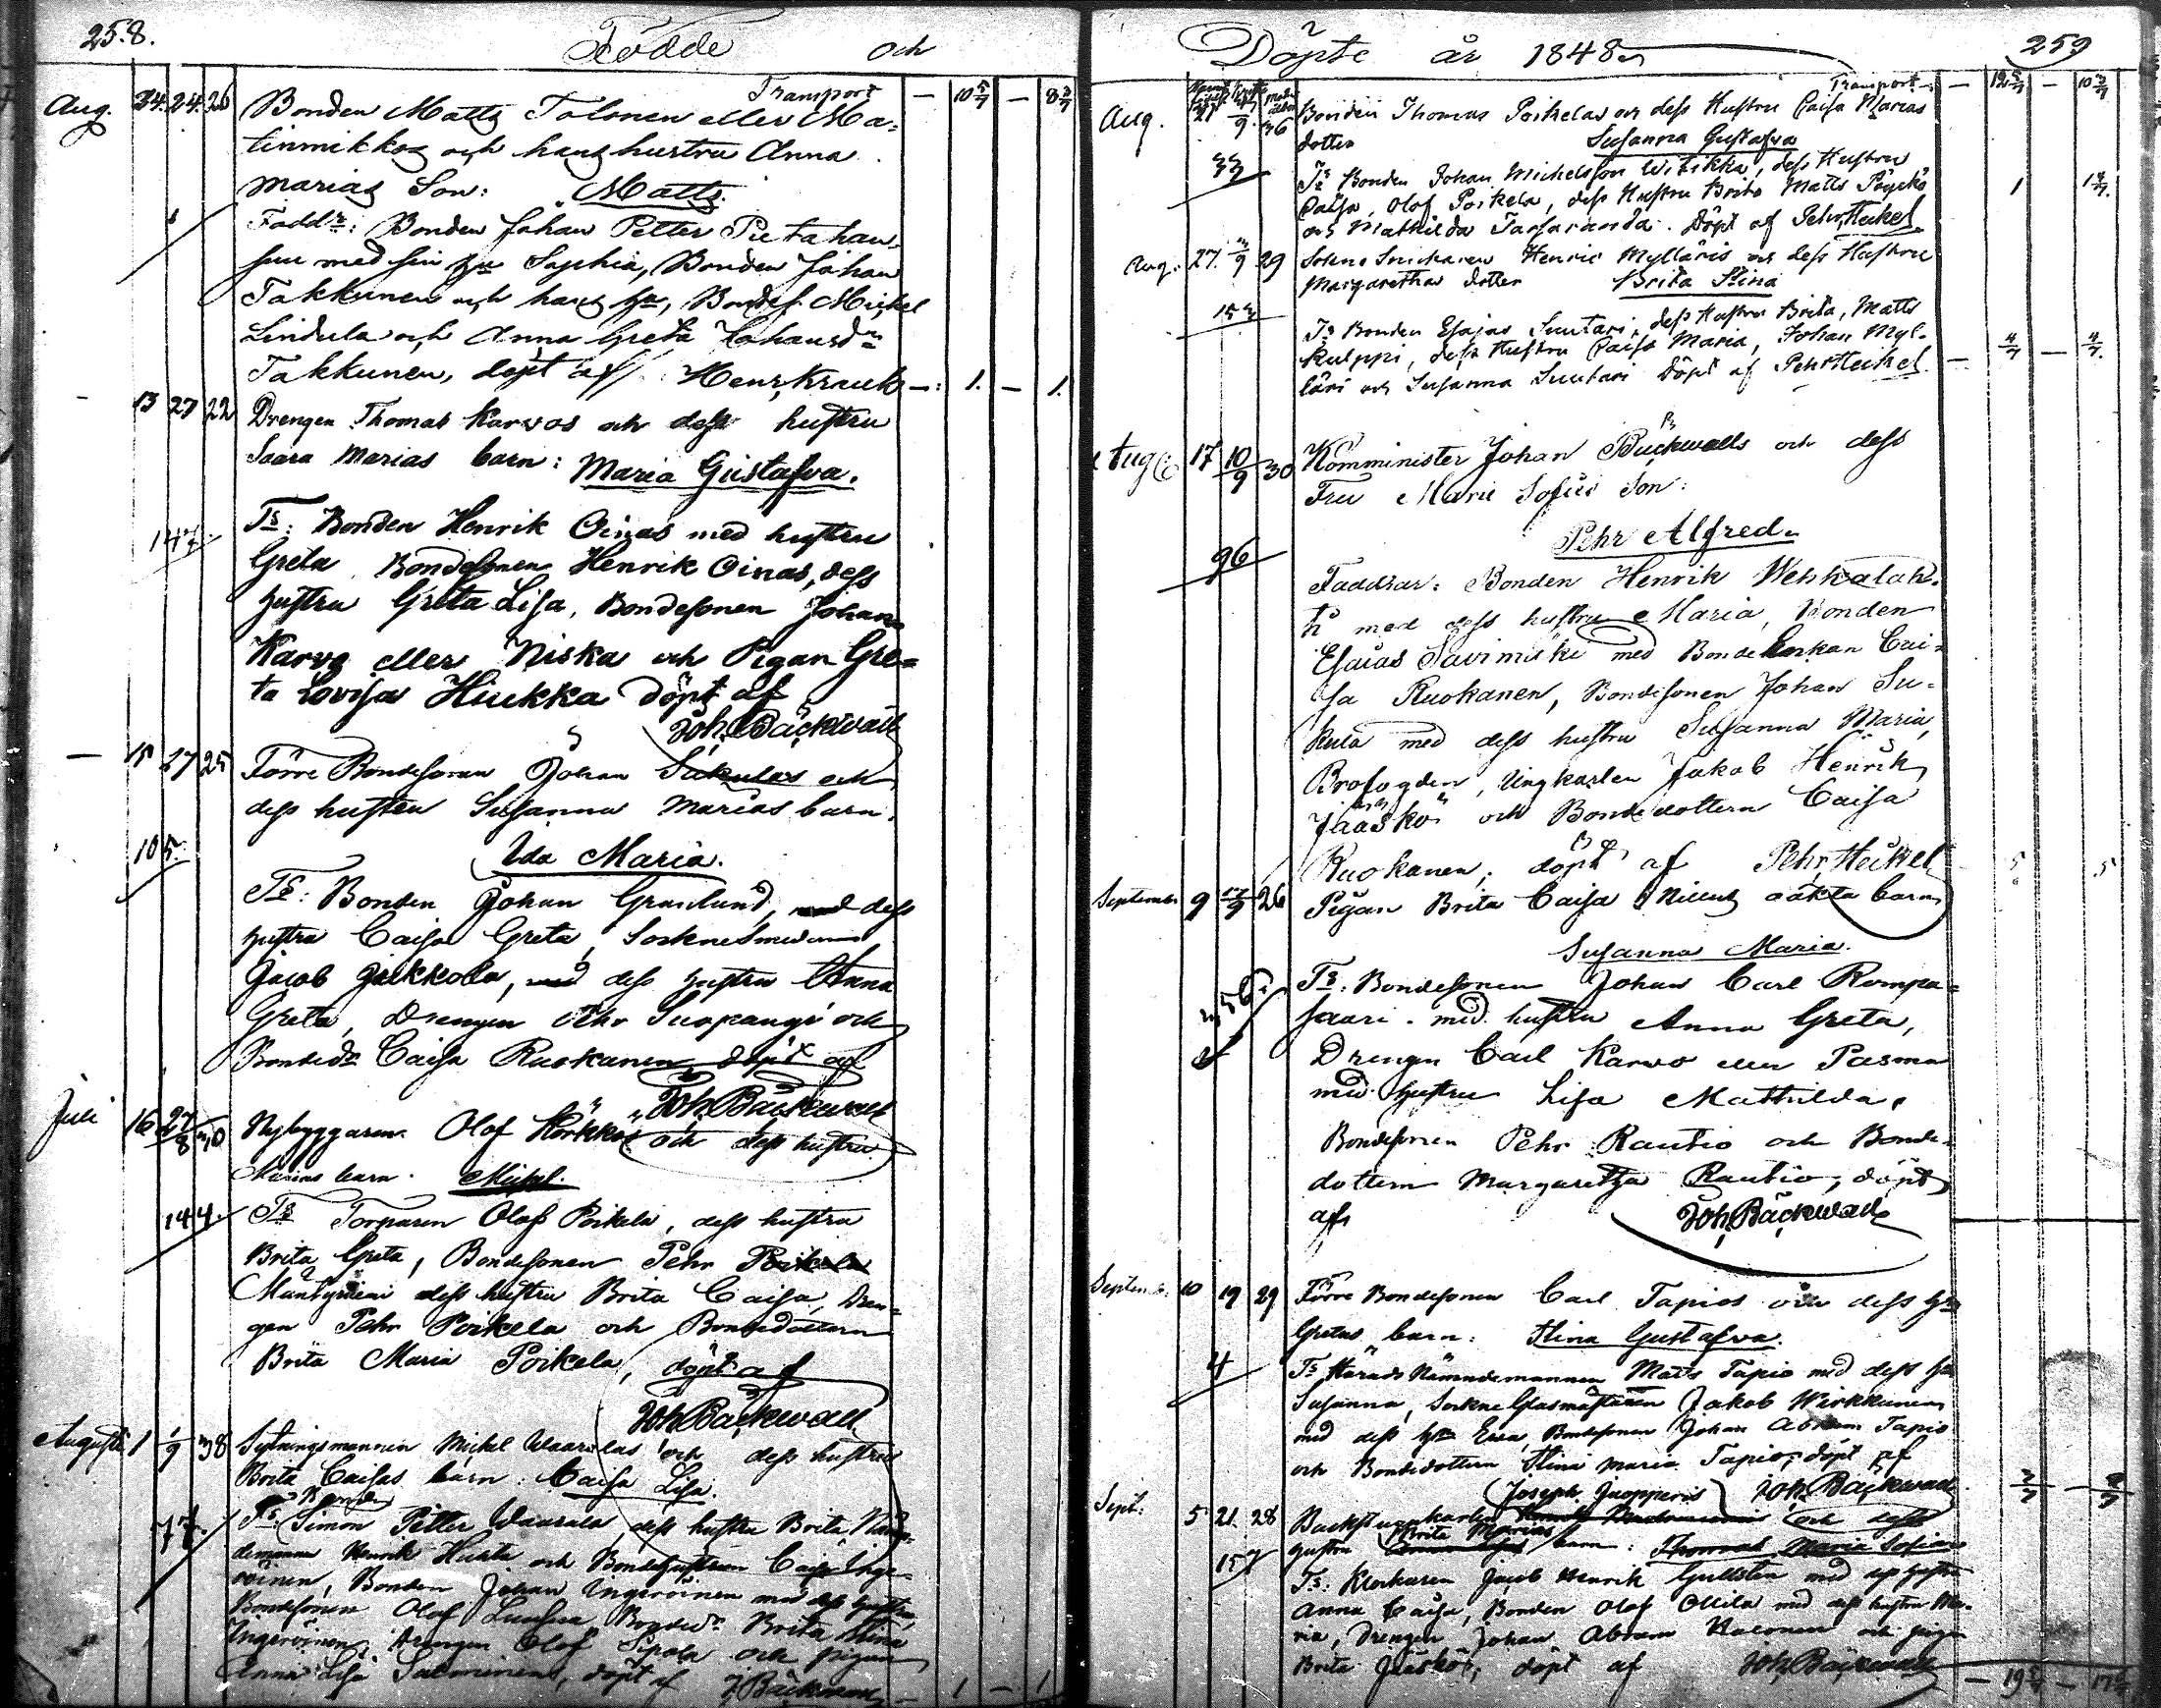 258.
Födde och
Transport
Aug. 24. 24. 26 Bonden Matts Tolonen eller Ma=
tinmikkos och hans hustru Anna
Marias Son: Matts.
Faddr: Bonden Johan Petter Pietahan
med sin hu Sophia, Bonden Johan
Takkunen och hans hu, Bondes. Michel
Lindula och Anna Greta Johansdr
Takkunen, döpt af Henr, Krank — 1. — 1.
13 27 22 Drengen Thomas Karvos och dess hustru
Saara Marias barn: Maria Gustafva.
Ts: Bonden Henrik Oinas med hustru
Greta Bondesonen Henrik Oinas, dess
hustru Greta Lisa, Bondesonen Johan
Karvo eller Niska och Pigan Gre=
ta Lovisa Hiukka döpt af
Joh. Bäckwall
— 15 27 25 Förre Bondesonen Johan Sukulas och
dess hustru Susanna Marias barn.
105. Ida Maria.
Ts: Bonden Johan Granlund, dess
hustru Caisa Greta, Sockne
Jacob Jukkola, dess hustru Anna
Greta, Drengen Pehr Suopangi och
Bondedr Caisa Ruokanen, döpt af
Joh. Bäckwall
Juli 16 27/8 30 Nybyggaren Olof Körkkö och dess hustru
Marias barn. Michel.
144. Ts Torparen Olof Poikela, dess hustru
Brita Greta, Bondesonen Pehr Poikela
dess hustru Brita Caisa, Dren=
gen Pehr Poikela och Bondedottern
Brita Maria Poikela, döpt af
Joh. Bäckwall
Augusti 1 1/9 38 Sytningsmannen Michel Waaralas och dess hustru
Brita Caisas barn: Caisa Lisa.
Bonden
Ts: Simon Petter Waarala, dess hustru Brita
Henrik Hurta och Bondehustrun Caisa Inge=
röinen, Bonden Johan Ingeröinen med dess hustru,
Bondesonen Olof Bondedr Brita Stina
Ingeröinen, Drengen Olof Sipola och pigan
Anna Lisa Salminen, döpt af J. Bäckwall — 1 — 1
Döpte år 1848
259
Transport
Aug. Bonden Thomas Poikelas och dess Hustru Caisa Marias
dotter Susanna Gustafva
Ts Bonden Johan Michelsson Witikka, dess Hustru
Caisa, Olof Poikela, dess Hustru Brita Matts Pöyckö
och Mathilda Tarsaranda. Döpt af Pehr Heikel
Aug. 27. 29 Sockne Henric Mylläris och dess Hustru
Margarethas dotter Brita Stina
Ts Bonden Esajas Suutari, dess Hustru Brita, Matts
Kulppi, dess Hustru Caisa Maria, Johan Myl=
läri och Susanna Suutari Döpt af Pehr Heikel
Aug 17 10/9 30 Komminister Johan Bäckwalls och dess
Fru Marie Sofies Son:
Pehr Alfred.
96 Faddrar: Bonden Henrik Wehkalah=
ti med dess hustru Maria, Bonden
Esaias Savimäki med Bonde Enkan Cai=
sa Ruokanen, Bondesonen Johan Su=
kula med dess hustru Susanna Maria,
Brofogden, Ungkarlen Jakob Henrik
Jääskö och Bondedottern Caisa
Ruokanen; döpt af Pehr Heikel 5 5
September 9 17/9 26 Pigan Brita Caisa oäkta barn
Susanna Maria.
Ts: Bondesonen Johan Carl Rompa=
saari med hustru Anna Greta,
Drengen Carl Karvo eller Pasma
med hustru Lisa Mathilda,
Bondesonen Pehr Rautio och Bonde=
dottern Margaretha Rautio, döpt
af Joh. Bäckwall
Septemb. 10 19 29 Förre Bondesonen Carl Tapios och dess hu
Gretas barn: Stina Gustafva.
4 Ts Härads Nämndemannen Matts Tapio med dess hu
Susanna, Sockne Glasmästaren Jakob Wirkkunen
med dess hu Eva, Bondesonen Johan Abram Tapio
och Bondedottern Stina Maria Tapio, döpt af
Joseph Juopperis Joh. Bäckwall
Sept. 5 21. 28 Backstugukarlen och dess
hustru Brita Marias barn: Thomas Maria Sofia
157 Ts: Klockaren Jacob Henrik Gullsten med dess hustru
Anna Caisa, Bonden Olof Ollila med dess hustru Ma=
ria, Drengen Johan Abram och pigan
Brita Jääskö, döpt af Joh. Bäckwall